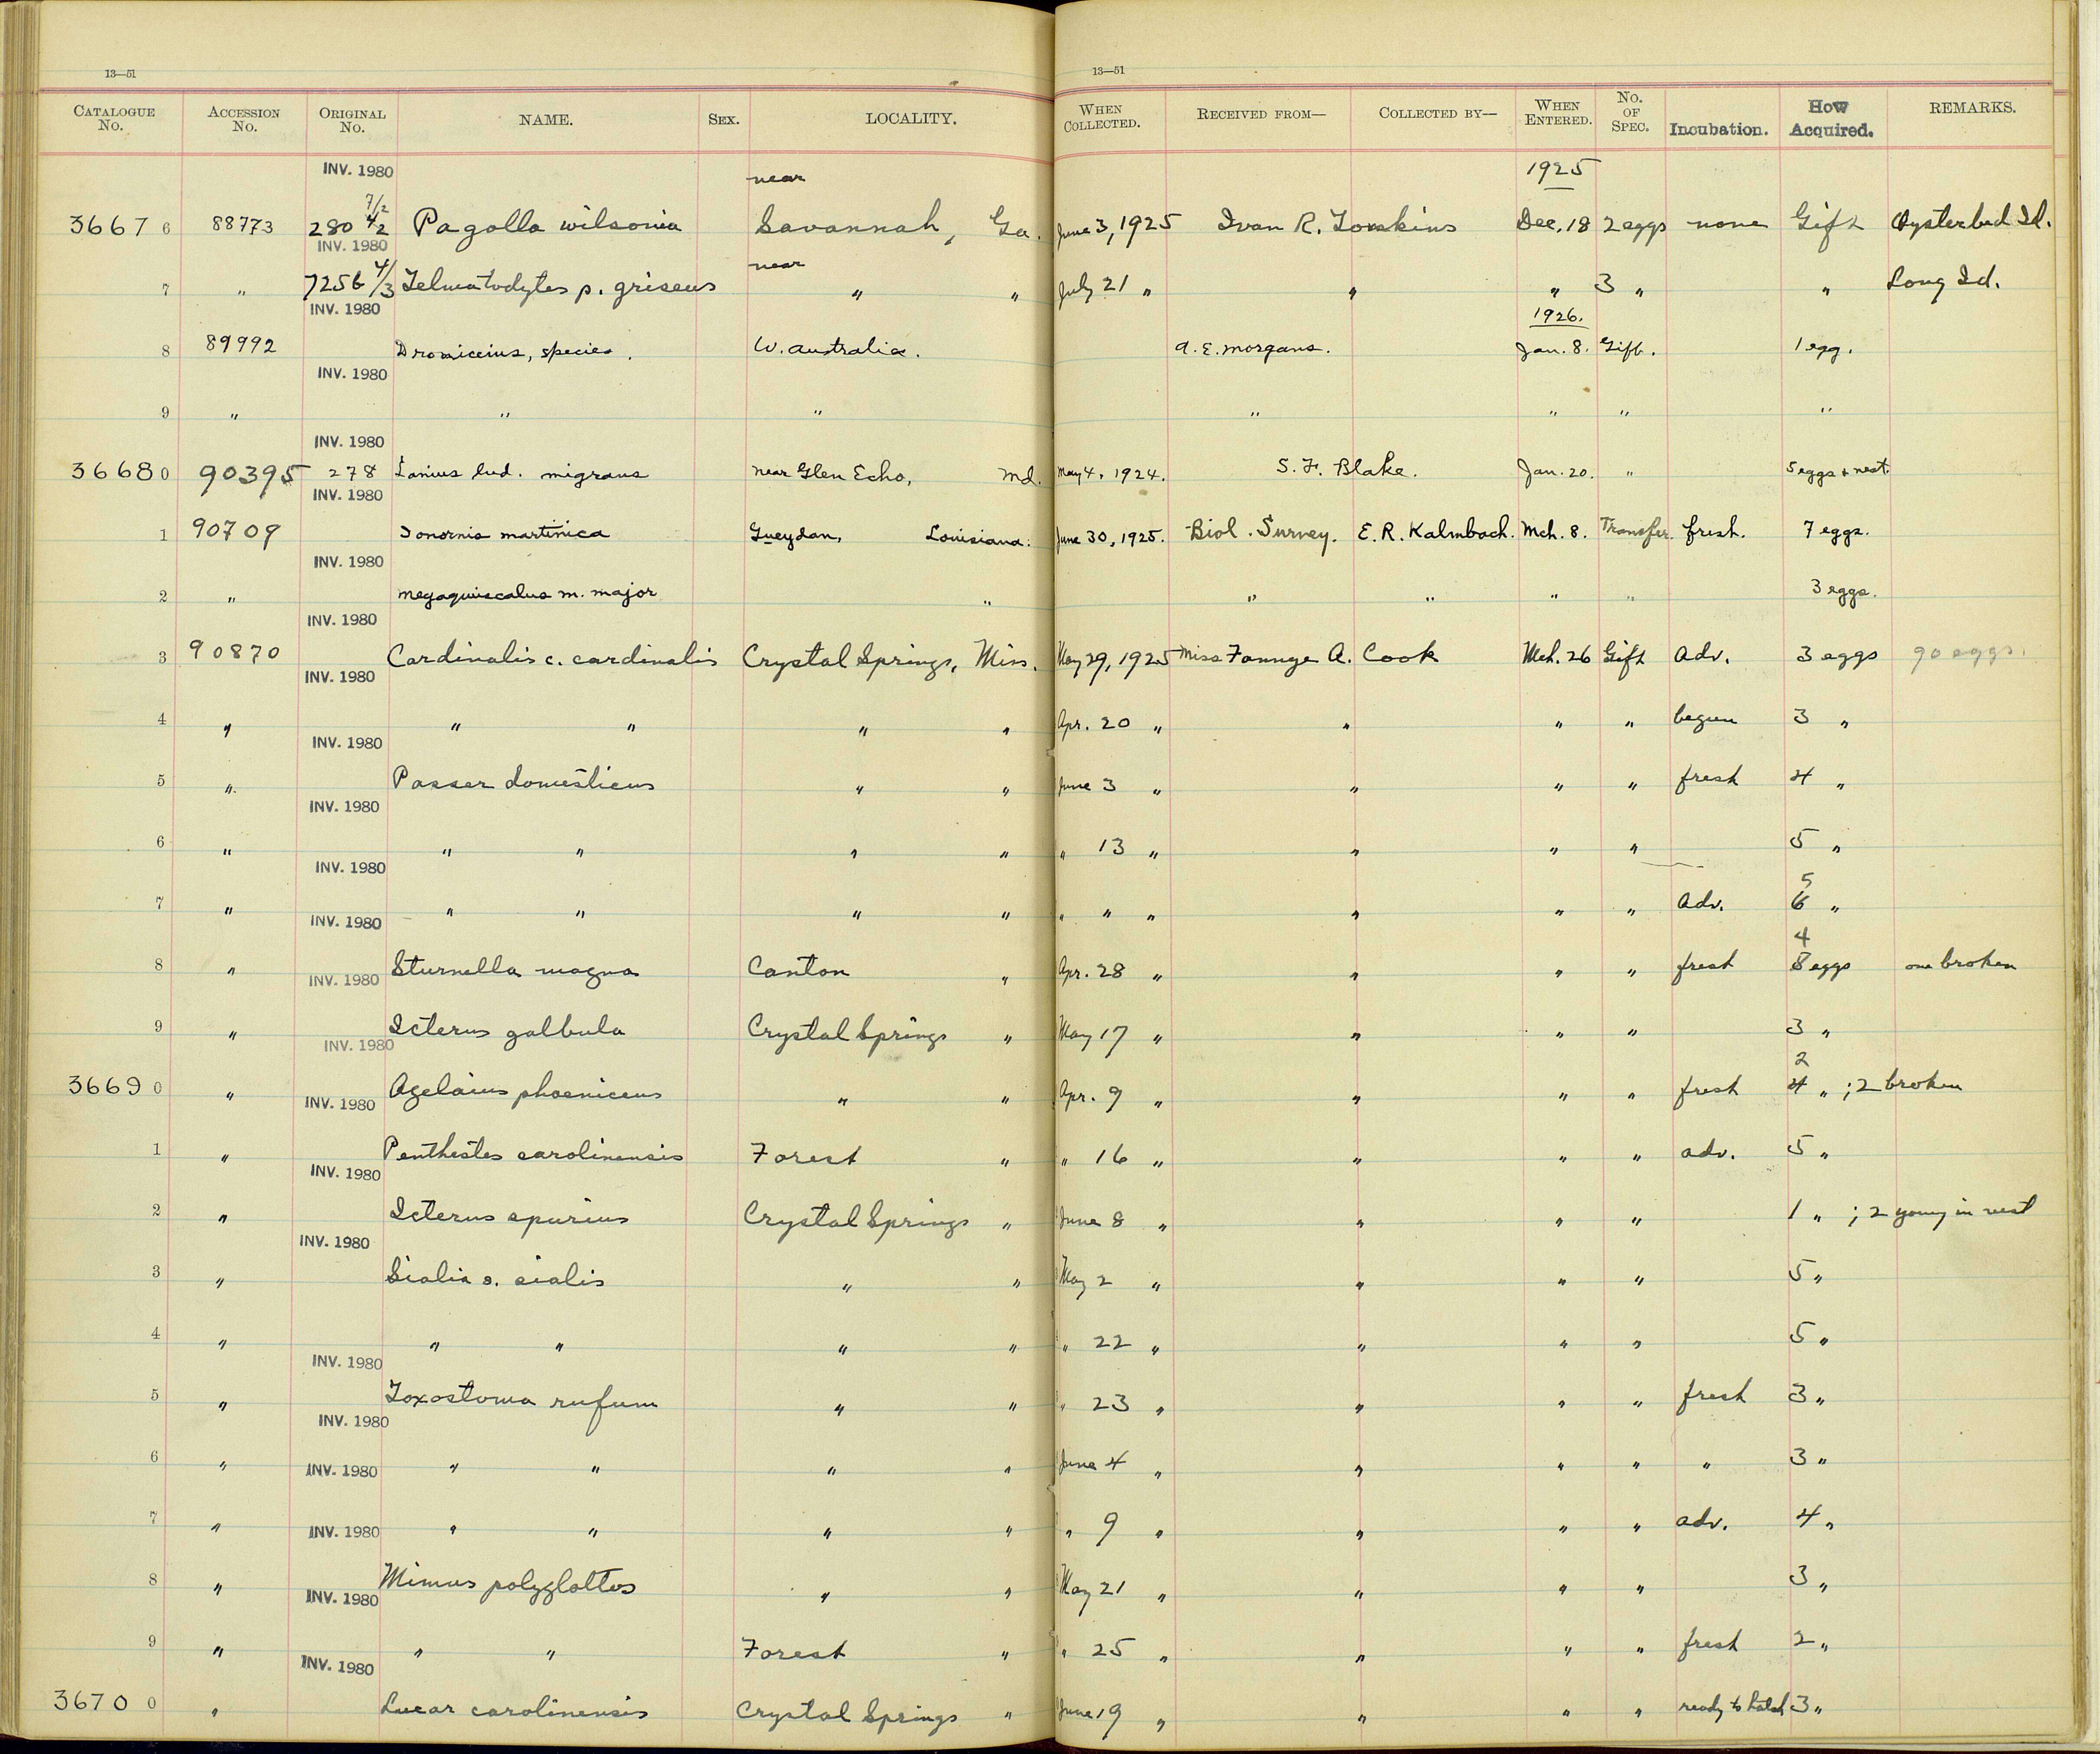 13—51 13—51
CATALOGUE No. ACCESSION No. ORIGINAL No. NAME. SEX. LOCALITY. WHEN COLLECTED. RECEIVED FROM— COLLECTED BY— WHEN ENTERED. No. OF SPEC. Incubation. How Acquired. REMARKS.
INV. 1980 near 1925
7/2
3667 6 88773 280 4/2 Pagolla wilsonia Savannah, Ga. June 3, 1925 Ivan R. Tomkins Dec. 18 2 eggs none Gift Oysterbed Id.
INV. 1980 near
7 " 7256 4/3 Telmatodytes p. griseus " " July 21 " " " 3 " " Long Id.
INV. 1980 1926.
8 89992 Dromiceius, species. W. Australia. A. E. Morgans. Jan. 8. Gift. 1 egg.
INV. 1980
9 " " " " " " "
INV. 1980
3668 0 90395 278 Lanius lud. migrans near Glen Echo, Md. May 4, 1924. S. F. Blake. Jan. 20. " 5 eggs & nest.
INV. 1980
1 90709 Ionornis martinica Gueydan, Louisiana. June 30, 1925. Biol. Survey. E. R. Kalmbach. Mch. 8. Transfer. fresh. 7 eggs.
INV. 1980
2 " Megaquiscalus m. major " " " " " 3 eggs.
INV. 1980
3 90870 Cardinalis c. cardinalis Crystal Springs, Miss. May 29, 1925 Miss Fannye A. Cook Mch. 26 Gift Adv. 3 eggs 90 eggs.
INV. 1980
4 " " " " " Apr. 20 " " " " begun 3 "
INV. 1980
5 " Passer domesticus " " June 3 " " " " fresh 4 "
INV. 1980
6 " " " " " " 13 " " " " 5 "
INV. 1980
5
7 " " " " " " " " " " " Adv. 6 "
INV. 1980
4
8 " Sturnella magna Canton " Apr. 28 " " " " fresh 8 eggs one broken
INV. 1980
9 " Icterus galbula Crystal Springs " May 17 " " " " 3 "
INV. 1980
2
3669 0 " Agelaius phoeniceus " " Apr. 9 " " " " fresh 4 " ; 2 broken
INV. 1980
1 " Penthestes carolinensis Forest " " 16 " " " " adv. 5 "
INV. 1980
2 " Icterus spurius Crystal Springs " June 8 " " " " 1 " ; 2 young in nest
INV. 1980
3 " Sialia s. sialis " " May 2 " " " " 5 "
4 " " " " " " 22 " " " " 5 "
INV. 1980
5 " Toxostoma rufum " " " 23 " " " " fresh 3 "
INV. 1980
6 " " " " " June 4 " " " " " 3 "
INV. 1980
7 " " " " " " 9 " " " " adv. 4 "
INV. 1980
8 " Mimus polyglottos " " May 21 " " " " 3 "
INV. 1980
9 " " " Forest " " 25 " " " " fresh 2 "
INV. 1980
3670 0 " Lucar carolinensis Crystal Springs " June 19 " " " " ready to hatch 3 "